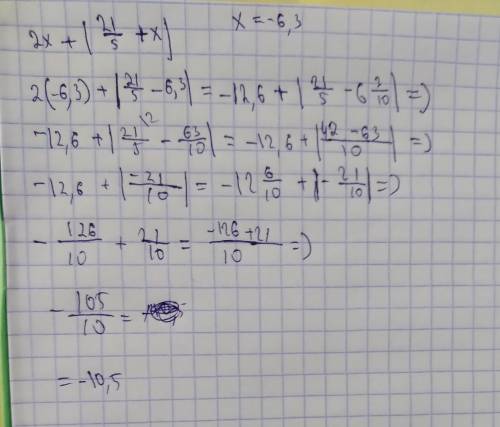 2x + |21/5 + x| x = -6,3
2(-6,3) + |21/5 - 6,3| = -12,6 + |21/5 - 6 3/10| =>
-12,6 + |21/5 \2 - 63/10| = -12,6 + |42 - 63/10| =>
-12,6 + |-21/10| = -12 6/10 + |-21/10| =>
- 126/10 + 21/10 = -126 + 21/10 =>
- 105/10 =
= -10,5